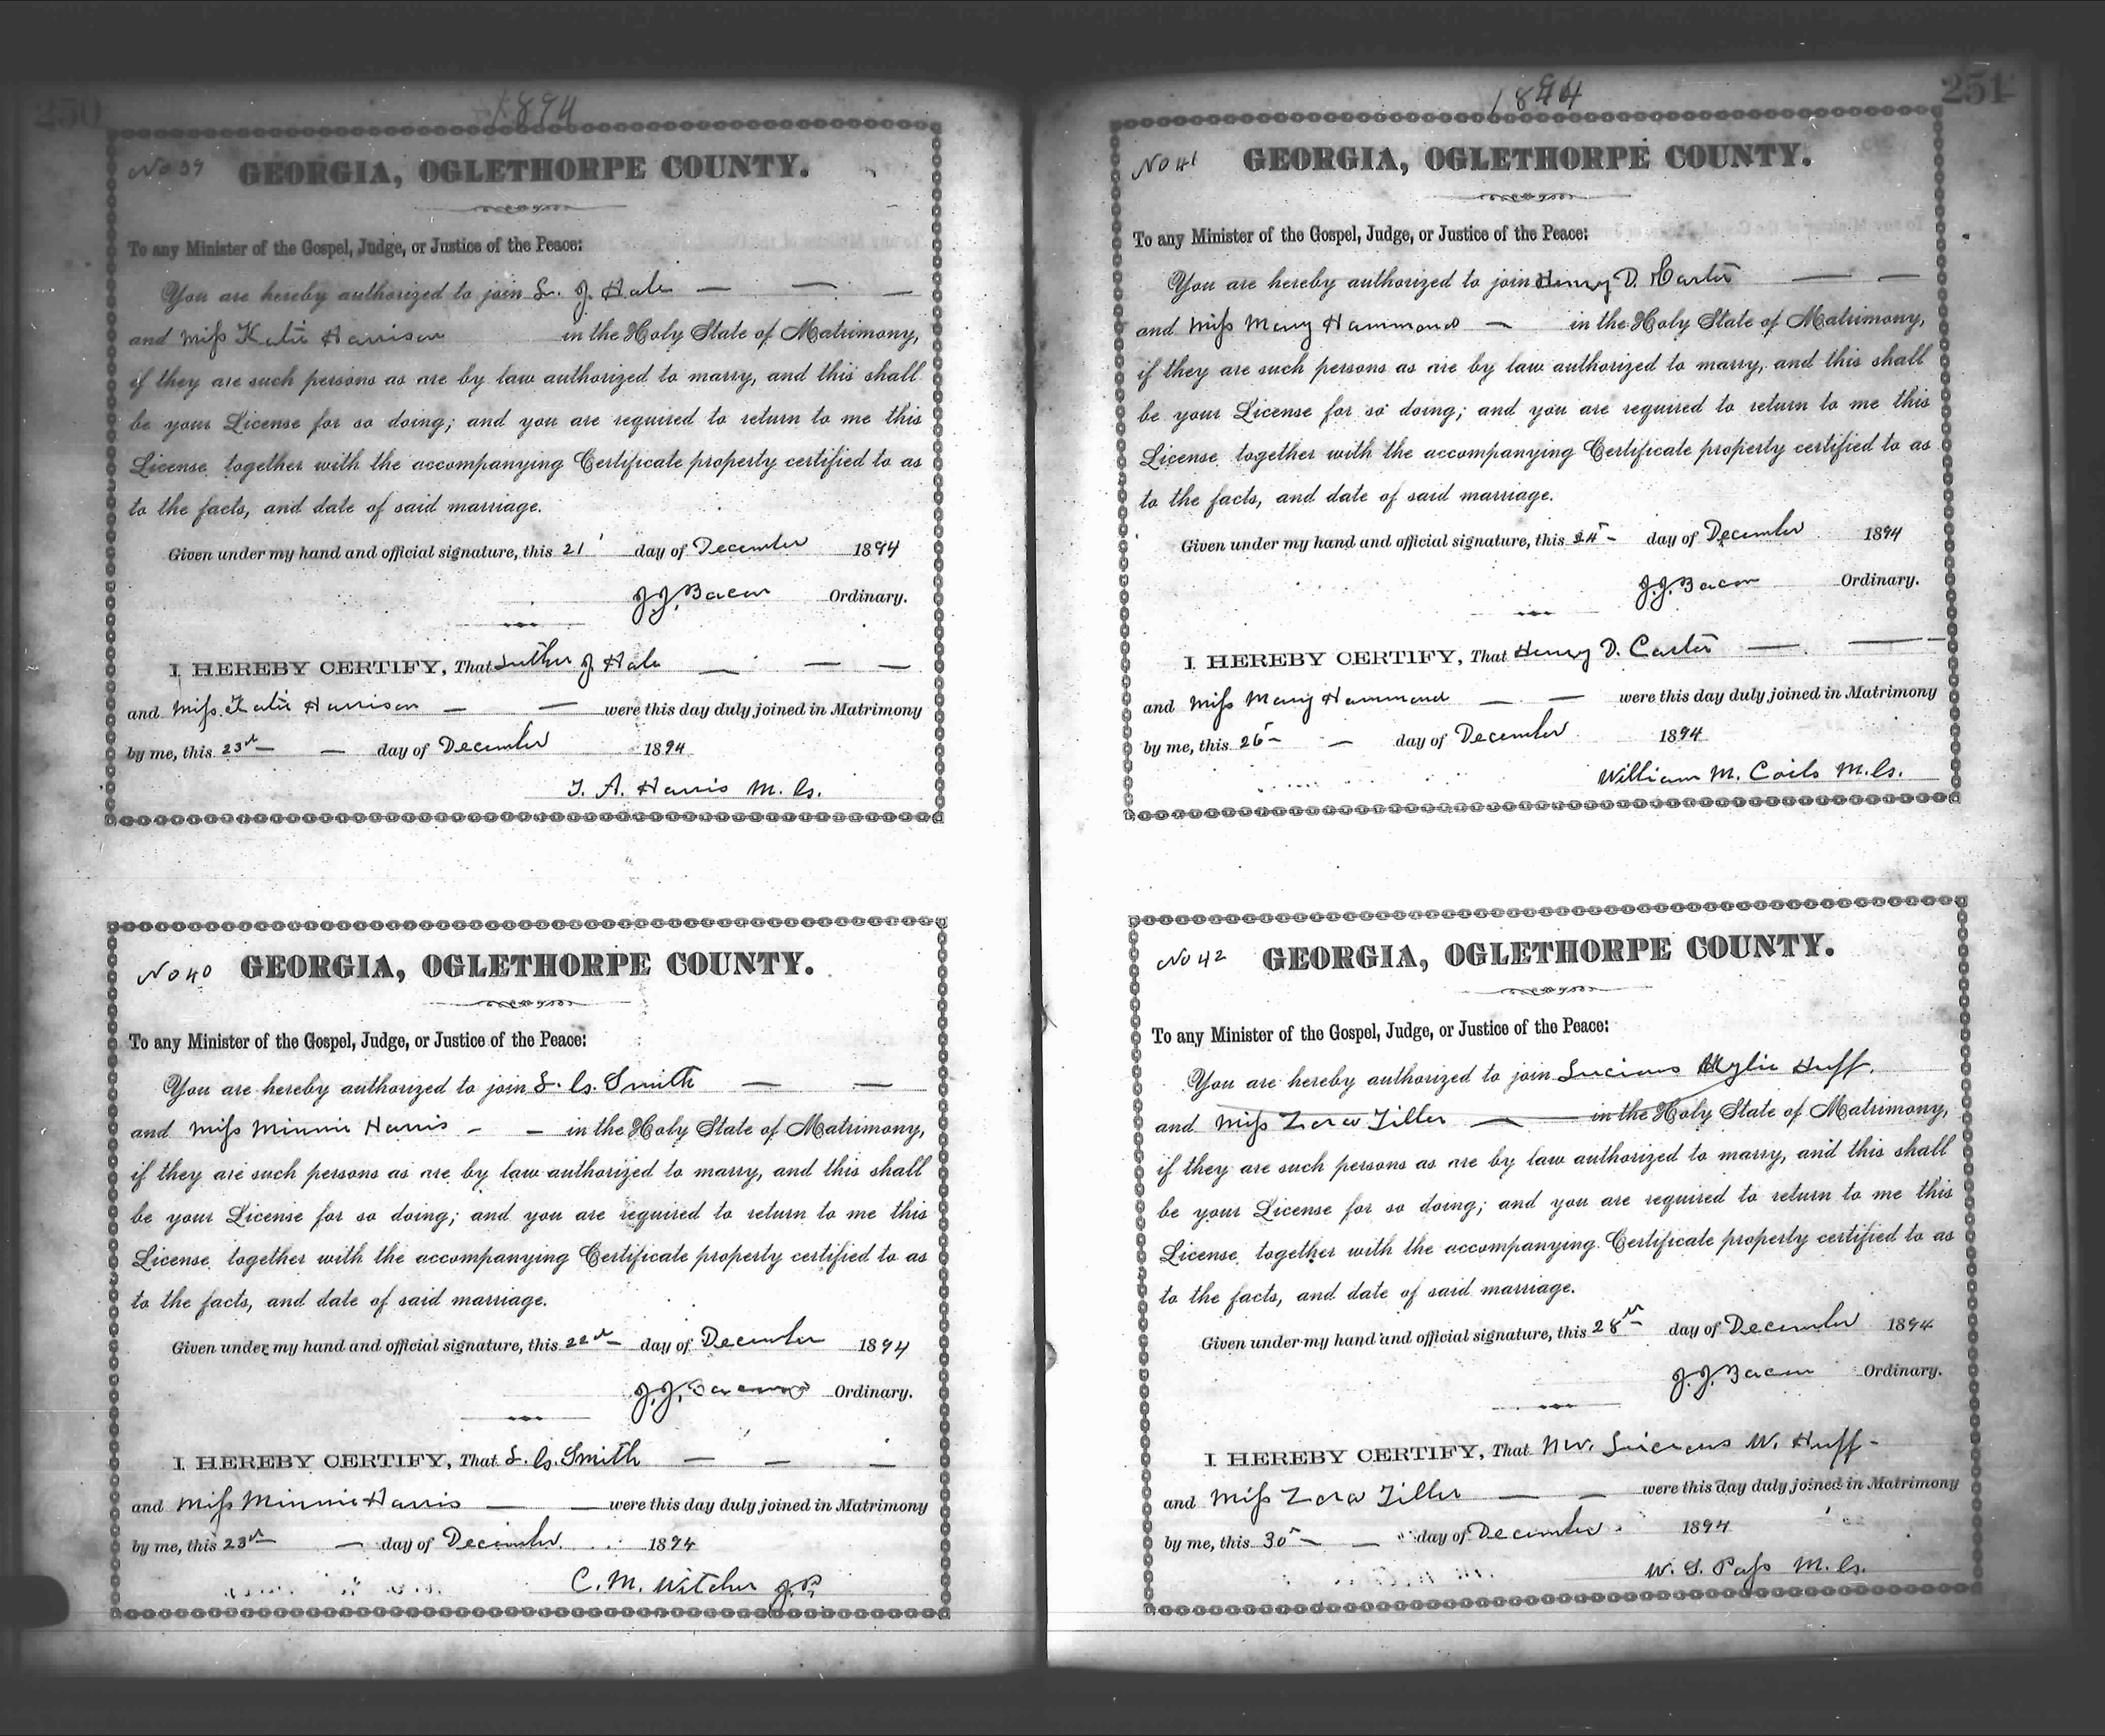 250
1894
No 39 GEORGIA, OGLETHORPE COUNTY.
To any Minister of the Gospel, Judge, or Justice of the Peace:
You are hereby authorized to join L. J. Hale
and Miss Katie Harrison in the Holy State of Matrimony,
if they are such persons as are by law authorized to marry, and this shall
be your License for so doing; and you are required to return to me this
License, together with the accompanying Certificate property certified to as
to the facts, and date of said marriage.
Given under my hand and official signature, this 21 day of December 1894
J.J. Bacon Ordinary.
I HEREBY CERTIFY, That Luther J Hale
and Miss Katie Harrison were this day duly joined in Matrimony
by me, this 23rd day of December 1894
T. A. Harris M. G.
No 40 GEORGIA, OGLETHORPE COUNTY.
To any Minister of the Gospel, Judge, or Justice of the Peace:
You are hereby authorized to join L. G. Smith
and Miss Minnie Harris in the Holy State of Matrimony,
if they are such persons as are by law authorized to marry, and this shall
be your License for so doing; and you are required to return to me this
License, together with the accompanying Certificate property certified to as
to the facts, and date of said marriage.
Given under my hand and official signature, this 22nd day of December 1894
J.J. Bacon Ordinary.
I HEREBY CERTIFY, That L. G. Smith
and Miss Minnie Harris were this day duly joined in Matrimony
by me, this 23rd day of December 1894
C. M. Witcher J.P.
251
1894
No 41 GEORGIA, OGLETHORPE COUNTY.
To any Minister of the Gospel, Judge, or Justice of the Peace:
You are hereby authorized to join Henry D. Carter
and Miss Mary Hammond in the Holy State of Matrimony,
if they are such persons as are by law authorized to marry, and this shall
be your License for so doing; and you are required to return to me this
License, together with the accompanying Certificate property certified to as
to the facts, and date of said marriage.
Given under my hand and official signature, this day of December 1894
J.J. Bacon Ordinary.
I HEREBY CERTIFY, That Henry D. Carter
and Miss Mary Hammond were this day duly joined in Matrimony
by me, this 26 day of December 1894
William M. Coile M.G.
No 42 GEORGIA, OGLETHORPE COUNTY.
To any Minister of the Gospel, Judge, or Justice of the Peace:
You are hereby authorized to join Lucious Wylie Huff.
and Miss Zora Tiller in the Holy State of Matrimony,
if they are such persons as are by law authorized to marry, and this shall
be your License for so doing; and you are required to return to me this
License, together with the accompanying Certificate property certified to as
to the facts, and date of said marriage.
Given under my hand and official signature, this 28th day of December 1894
J.J. Bacon Ordinary.
I HEREBY CERTIFY, That Mr. Lucious W. Huff
and Miss Zora Tiller were this day duly joined in Matrimony
by me, this 30 day of December 1894
W. S. Pass M. G.